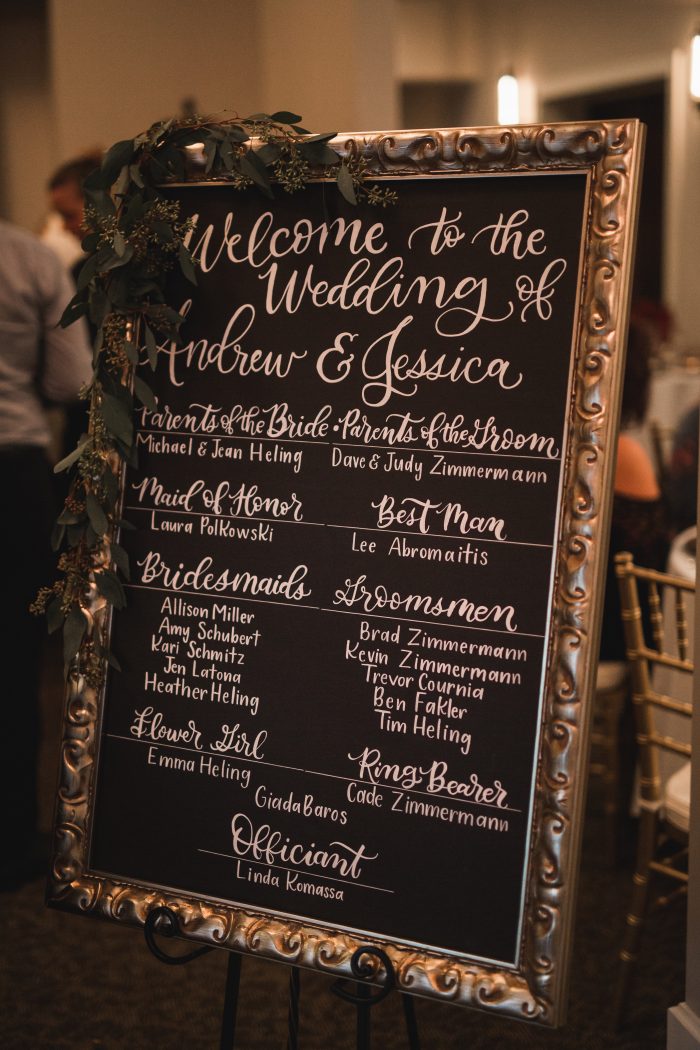 Welcome to the
Wedding of
Andrew & Jessica
Parents of the Bride • Parents of the Groom
Michael & Jean Heling
Dave & Judy Zimmermann
Maid of Honor
Laura Polkowski
Best Man
Lee Abromaitis
Bridesmaids
Allison Miller
Amy Schubert
Kari Schmitz
Jen Latona
Heather Heling
Groomsmen
Brad Zimmermann
Kevin Zimmermann
Trevor Cournia
Ben Fakler
Tim Heling
Flower Girl
Emma Heling
Giada Baros
Ring Bearer
Cade Zimmermann
Officiant
Linda Komassa